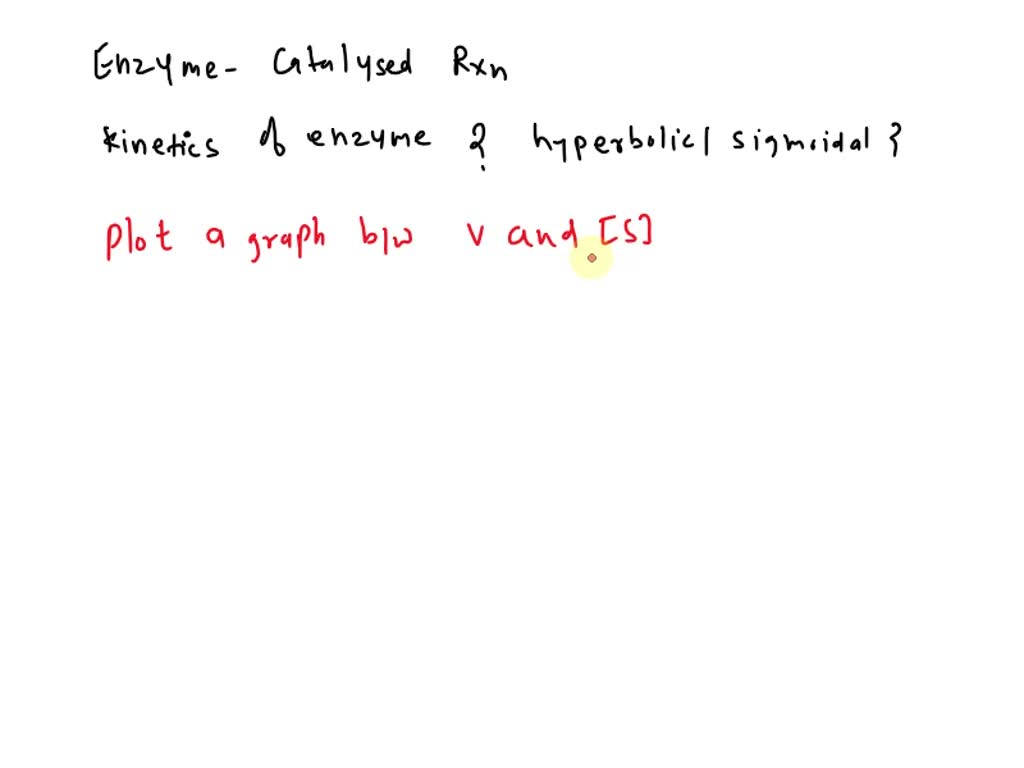 Enzyme- Catalysed Rxn
kinetics of enzyme ? hyperbolic/ sigmoidal ?
plot a graph b/w v and [S]